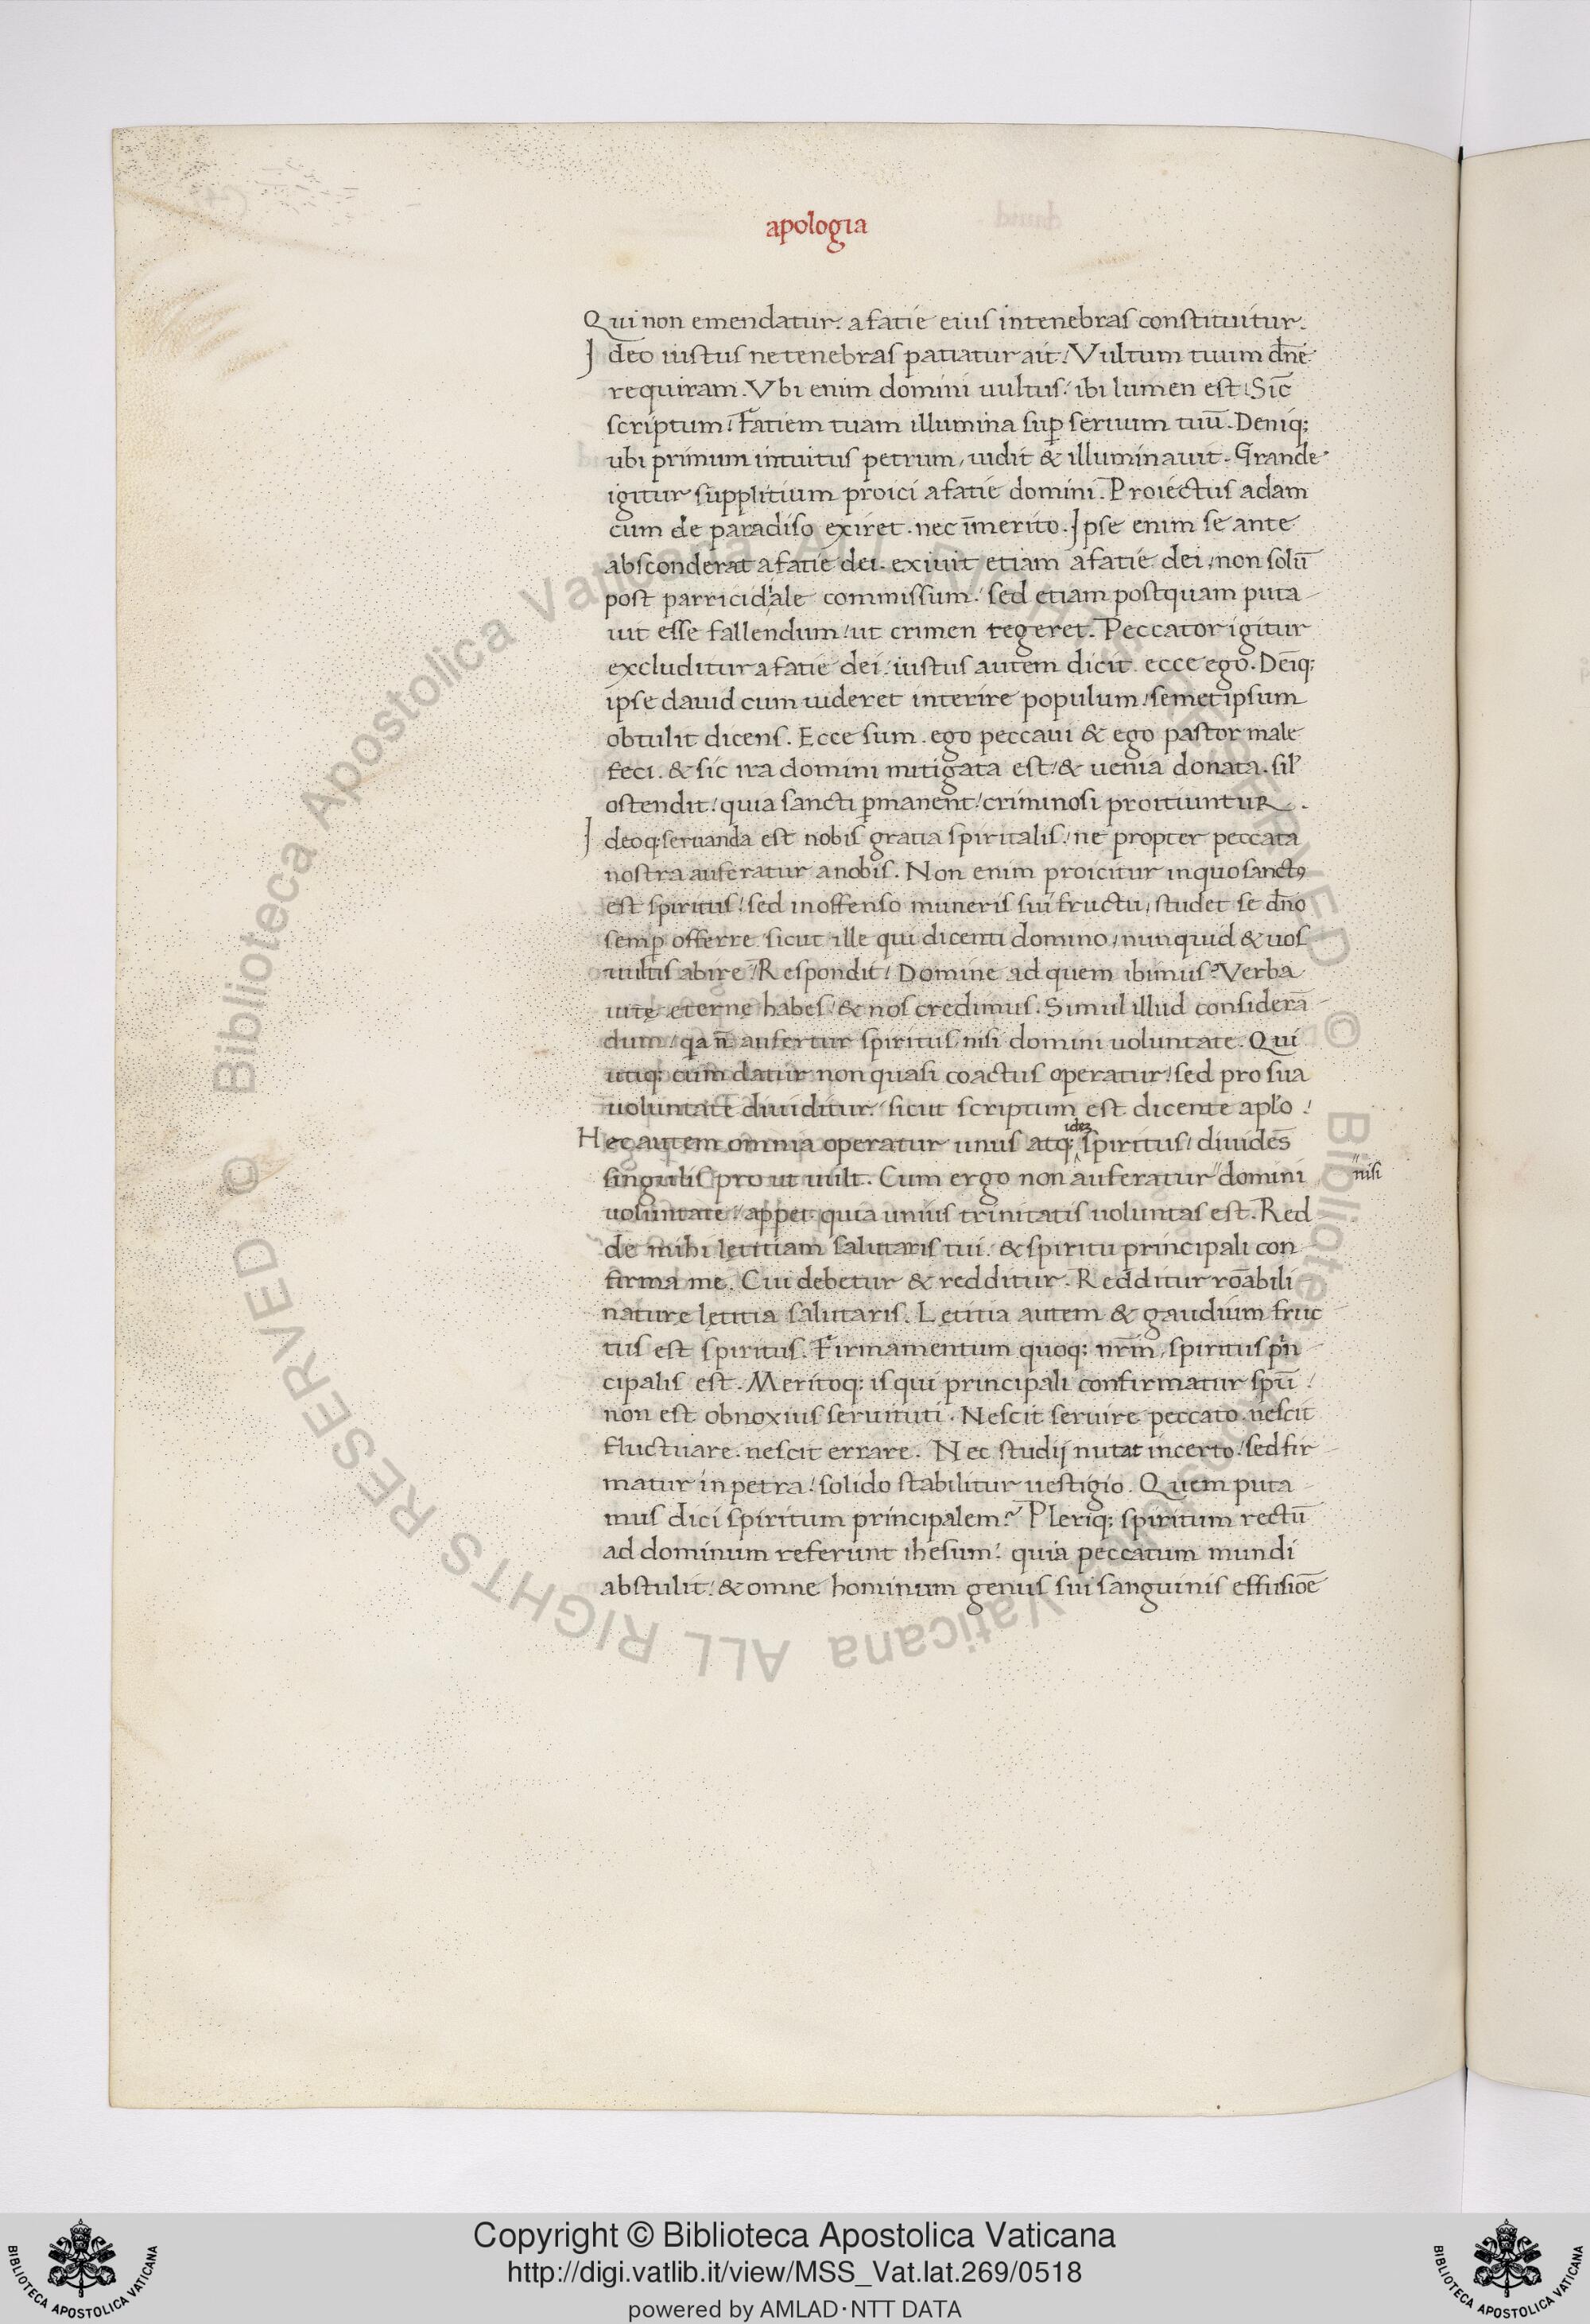 apologia
Qui non emendatur. a fatie eius in tenebras constituitur.
Ideo iustus ne tenebras patiatur ait: Vultum tuum dn̄e
requiram. Vbi enim domini uultus: ibi lumen est: Sic̄
scriptum: Fatiem tuam illumina suꝑ seruum tuū. Deniq;
ubi primum intuitus petrum, uidit & illuminauit. Grande
igitur supplitium proici a fatie domini. Proiectus adam
cum de paradiso exiret. nec īmerito. Ipse enim se ante
absconderat a fatie dei. exiuit etiam a fatie dei, non solū
post parricidiale commissum: sed etiam postquam puta
uit esse fallendum: ut crimen tegeret. Peccator igitur
excluditur a fatie dei: iustus autem dicit. ecce ego. Deīq;
ipse dauid cum uideret interire populum: semetipsum
obtulit dicens. Ecce sum. ego peccaui & ego pastor male
feci. & sic ira domini mitigata est: & uenia donata. sil̓
ostendit: quia sancti ꝑmanent: criminosi proitiuntuR.
Ideoq; seruanda est nobis gratia spiritalis: ne propter peccata
nostra auferatur a nobis. Non enim proicitur in quo sanctꝰ
est spiritus: sed inoffenso muneris sui fructu, studet se dn̄o
semꝑ offerre. sicut ille qui dicenti domino, nunquid & uos
uultis abire: Respondit: Domine ad quem ibimus? Verba
uitę eterne habes: & nos credimus. Simul illud considerā
dum: qa n̄ aufertur spiritus, nisi domini uoluntate. Qui
utiq; cum datur non quasi coactus operatur: sed pro sua
uoluntate diuiditur: sicut scriptum est dicente apl̓o:
idez
Hec autem omnia operatur unus atq; spiritus: diuidēs
singulis prout uult. Cum ergo non auferatur" domini
"nisi
uoluntate: appet. quia unius trinitatis uoluntas est. Red
de mihi lętitiam salutaris tui. & spiritu principali con
firma me. Cui debetur & redditur. Redditur roābili
naturę lętitia salutaris. Lętitia autem & gaudium fruc
tus est spiritus. Firmamentum quoq; nrm̄, spiritus pin̄
cipalis est. Meritoq; is qui principali confirmatur spū:
non est obnoxius seruituti. Nescit seruire peccato. nescit
fluctuare. nescit errare. Nec studij nutat incerto: sed fir
matur in petra: solido stabilitur uestigio. Quem puta
mus dici spiritum principalem? Pleriq; spiritum rectū
ad dominum referunt ihesum: quia peccatum mundi
abstulit: & omne hominum genus sui sanguinis effusiōe
© Biblioteca Apostolica Vaticana ALL RIGHTS RESERVED © Biblioteca Apostolica Vaticana ALL RIGHTS RESERVED
Copyright © Biblioteca Apostolica Vaticana
http://digi.vatlib.it/view/MSS_Vat.lat.269/0518
powered by AMLAD·NTT DATA
BIBLIOTECA APOSTOLICA VATICANA
BIBLIOTECA APOSTOLICA VATICANA